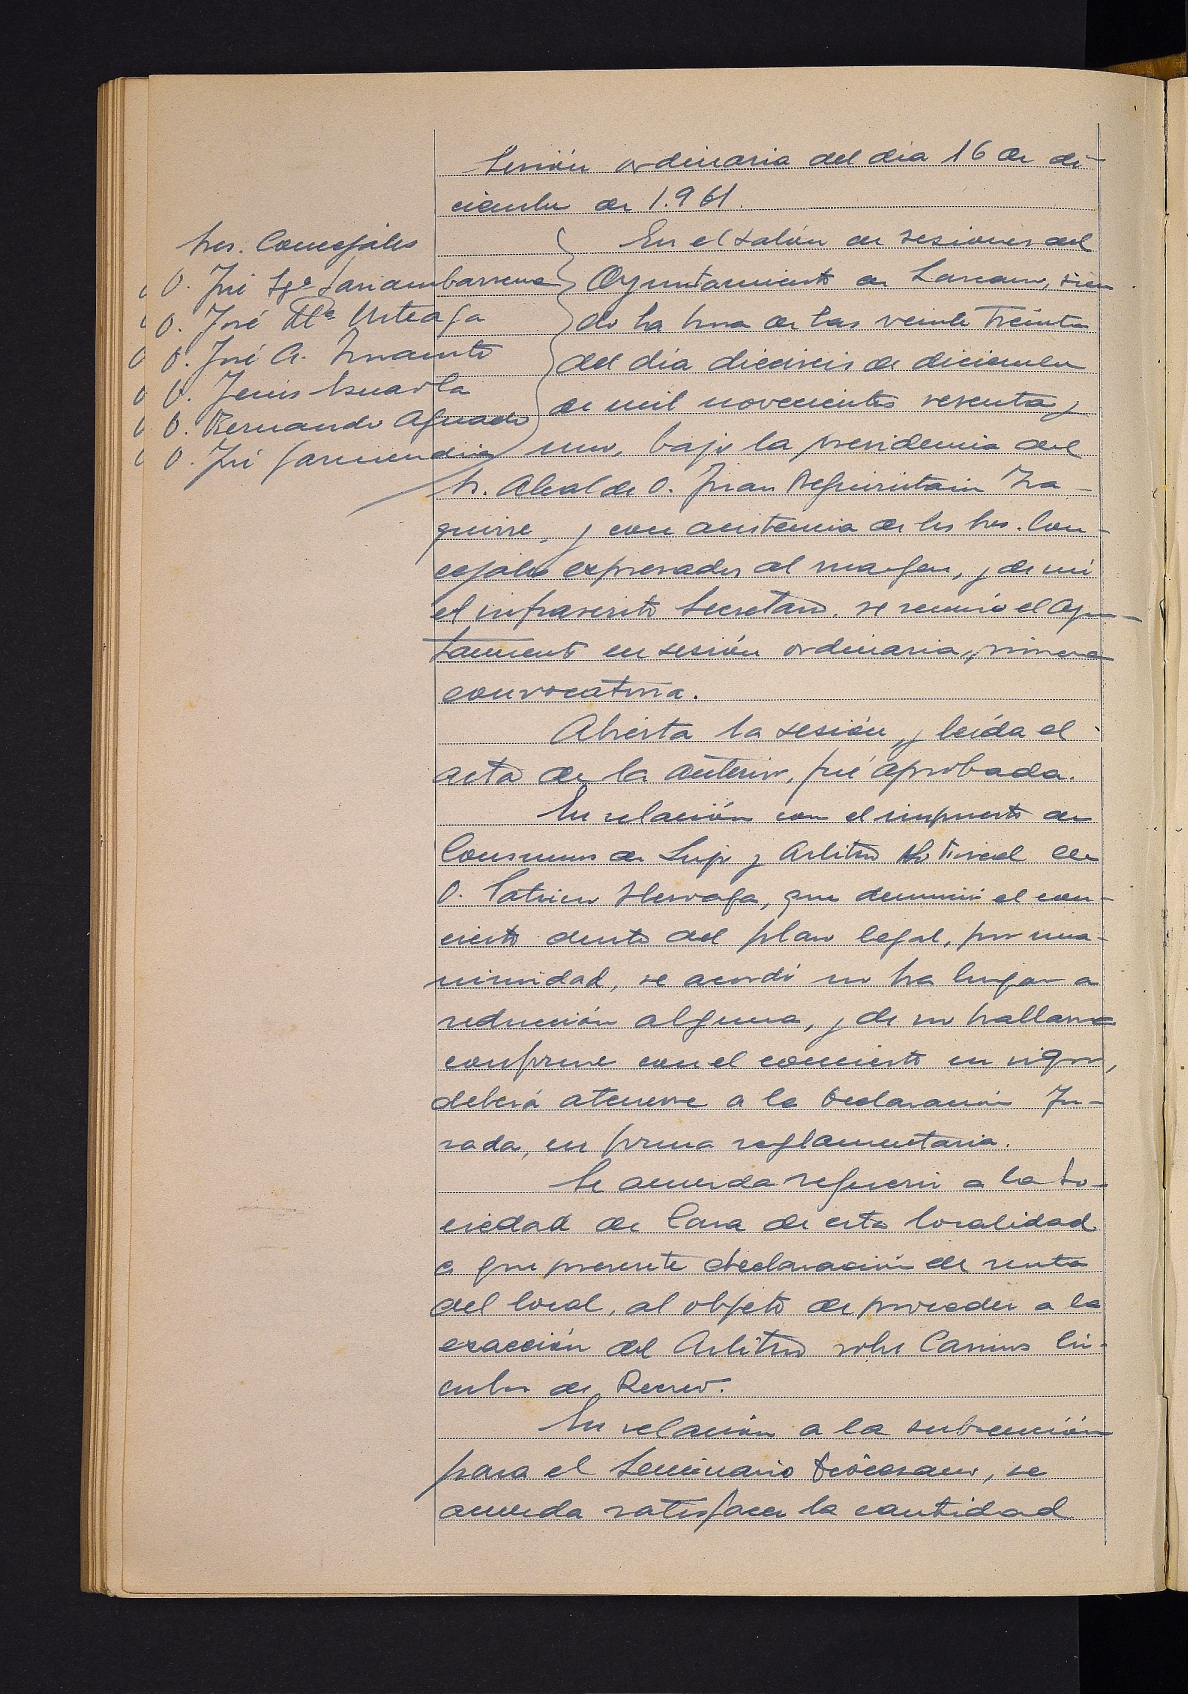 Sesión ordinaria del dia 16 de di-
ciembre de 1.961.
Sres. Concejales
D. José Igº Lariambarrena
D. José Mª Urteaga
D. José A.
D. Jesús
D. Bernardo Aguado
D. José Garmendia
En el salón de sesiones del
Ayuntamiento de Lazcano, sien
do la hora de las veinte treinta
del día dieciseis de diciembre
de mil novecientos sesenta y
uno, bajo la presidencia del
Sr. Alcalde D. Juan Aguirre
guirre, y con asistencia de los Sres. Con-
cejales expresados al margen, y de mi
el infrascrito Secretario. se reunió el Ayun-
tamiento en sesión ordinaria, primera
convocatoria.
Abierta la sesión, y leída el
acta de la anterior, fué aprobada.
En relación con el impuesto de
Consumos de Lujo y Arbitrio de
D. Patricio, que denunció el con-
cierto dento del plazo legal, por una-
nimidad, se acordó no ha lugar a
reducción alguna, y de no hallarse
conforme con el concierto en vigor,
deberá atenerse a la Declaración Ju-
rada, en forma reglamentaria.
Se acuerda requerir a la So-
ciedad de Caza de esta localidad
a que presente declaración de renta
del local, al objeto de proceder a la
exacción del Arbitrio sobre Casinos Cir-
culos de Recreo.
En relación a la subvención
para el Seminario Diocesano, se
acuerda satisfacer la cantidad